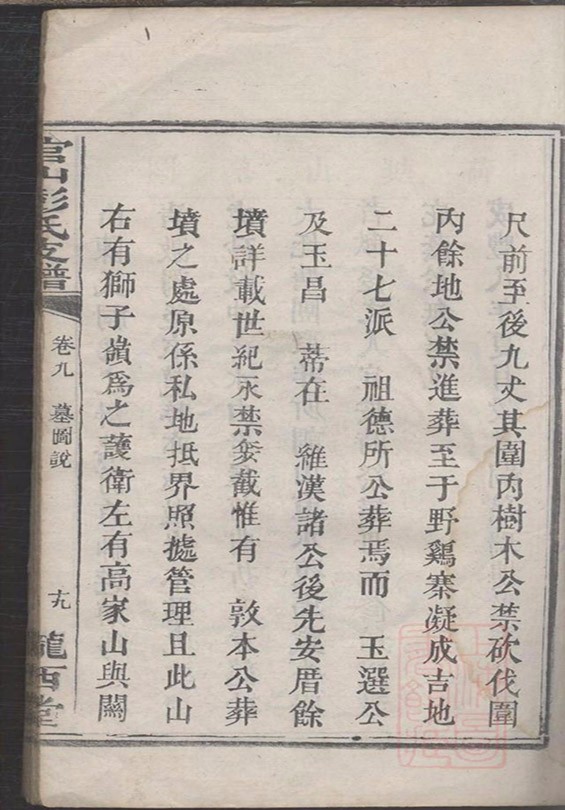 尺前至後九丈其圍內樹木公禁砍伐圍
內餘地公禁進葬至于野鷄寨凝成吉地
二十七派 祖德所公葬焉而 玉選公
及玉昌 蒂在 維漢諸公後先安厝餘
墳詳載世紀永禁妥截惟有 敦本公葬
墳之處原係私地抵界照據管理且此山
右有獅子嶺為之護衛左有高家山與關
官山彭氏支譜
卷九 墓圖說
十九
隴西堂